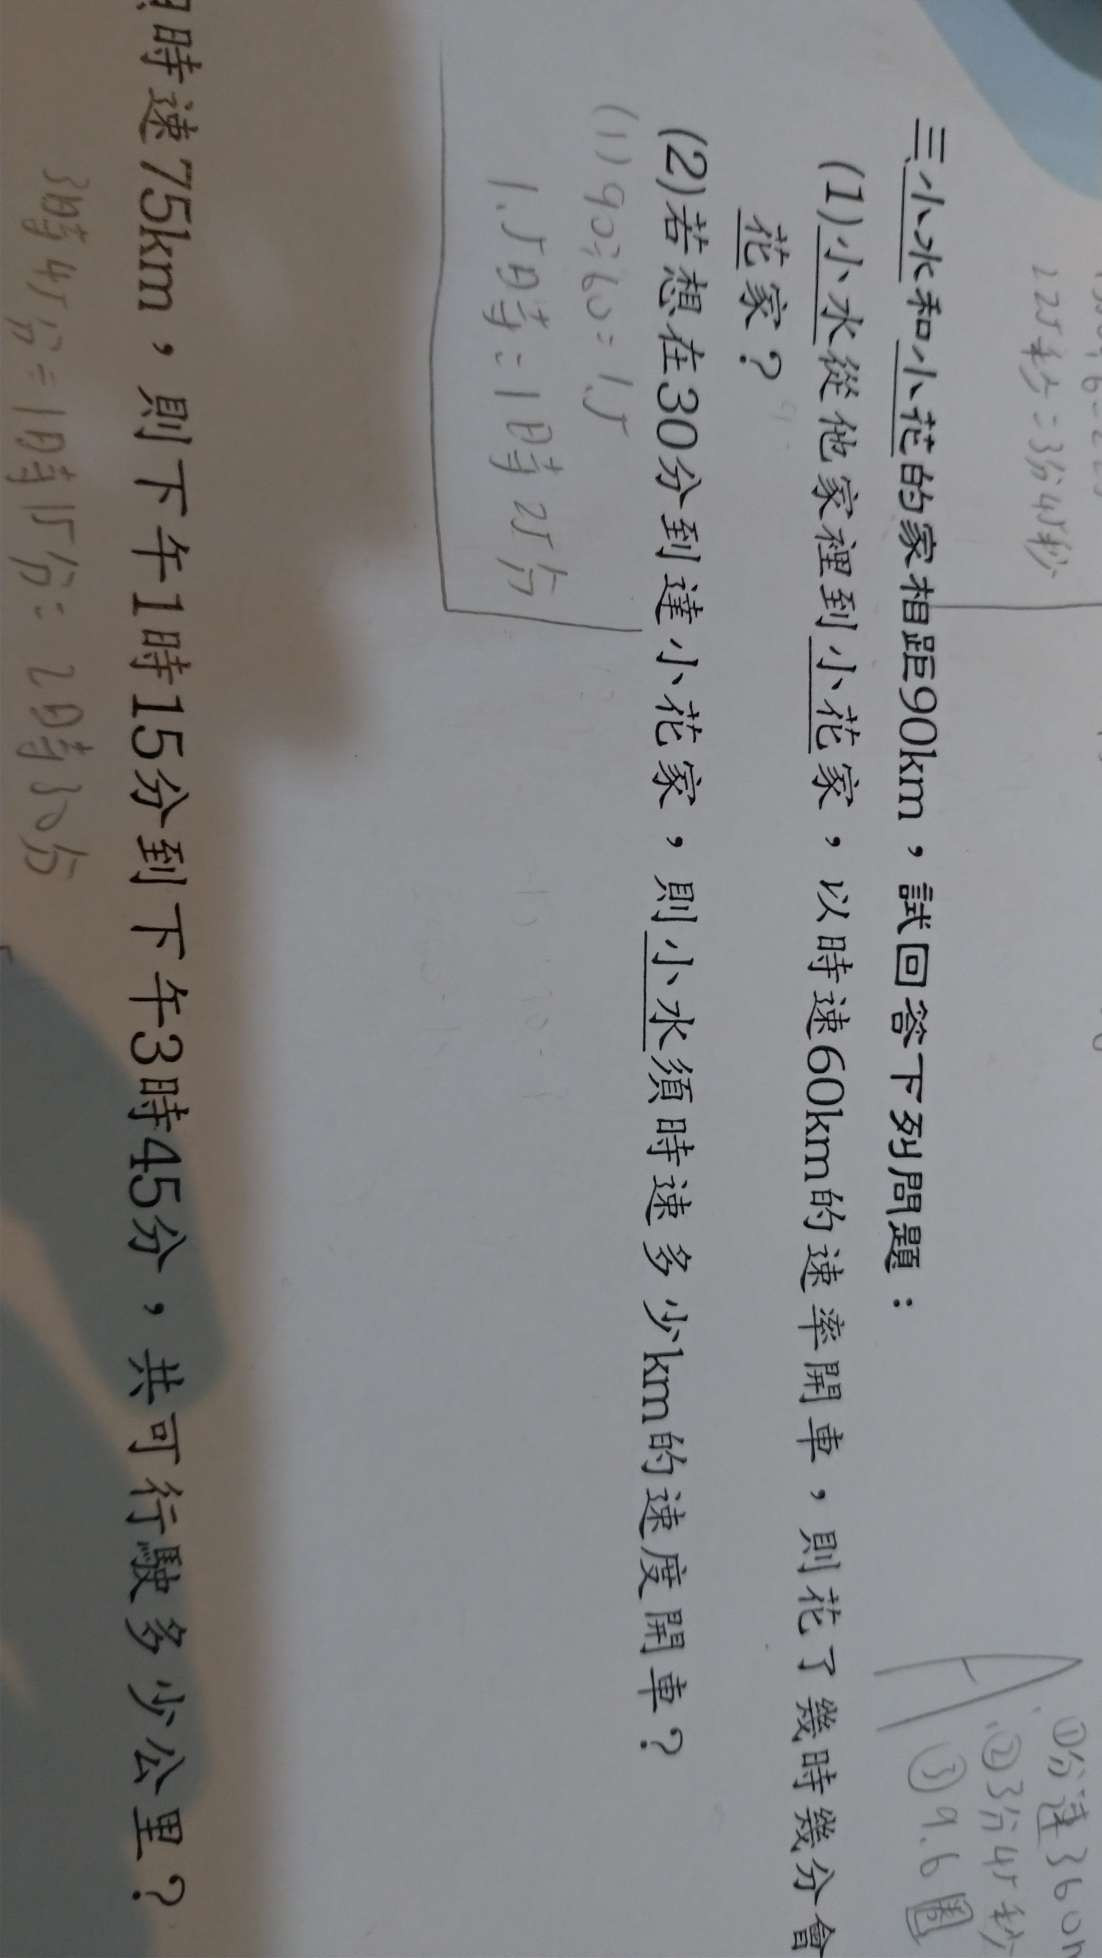 225秒=3分45秒
三小水和小花的家相距90km,試回答下列問題:
(1)小水從他家裡到小花家,以時速60km的速率開車,則花了幾時幾分會
花家?
(2)若想在30分到達小花家,則小水須時速多少km的速度開車?
(1)90÷60=1.5
1.5時=1時25分
時速75km,則下午1時15分到下午3時45分,共可行駛多少公里?
3時45分=1時15分=2時30分
A
①分速360m
②3分45秒
③9.6圈